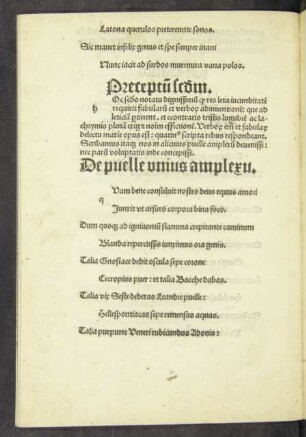 Latona querulos pretereunte sonos.
Sic manet infelix genus et spe semper inani
Nunc iacit ad surdos murmura vana polos.
Preceptū scdm.
h
Oc scdo notatu dignissimū q res leta iucunditatē
requirit fabularū et verboꝝ adinuentionē: que ad
leticiā ꝑtinent. et econtrario tristis lugubrē ac la-
chrymis plenā exigit noim effictionē. Verboꝝ em et fabulaꝝ
delectu matie opus est: quatinꝰ scripta ribus respondeant.
Scribamus itaqꝫ nos in alicuius puelle amplexū deuenisse:
nec parū voluptatis inde concepisse.
De puelle vnius amplexu.
q
Uam bene consuluit nostro deus equus amori
Junxit vt arsuris corpora bina foco.
Dum quoqꝫ ad igniuomū flamma crepitante caminum
Blanda repercussis iunximus ora genis.
Talia Gnosiace debit oscula sepe corone
Cecropius puer: et talia Bacche dabas.
Talia vix Seste dederas Leandre puelle:
Hellespontiacas sepe remensus aquas.
Talia purpuree Veneri rubicundus Adonis: